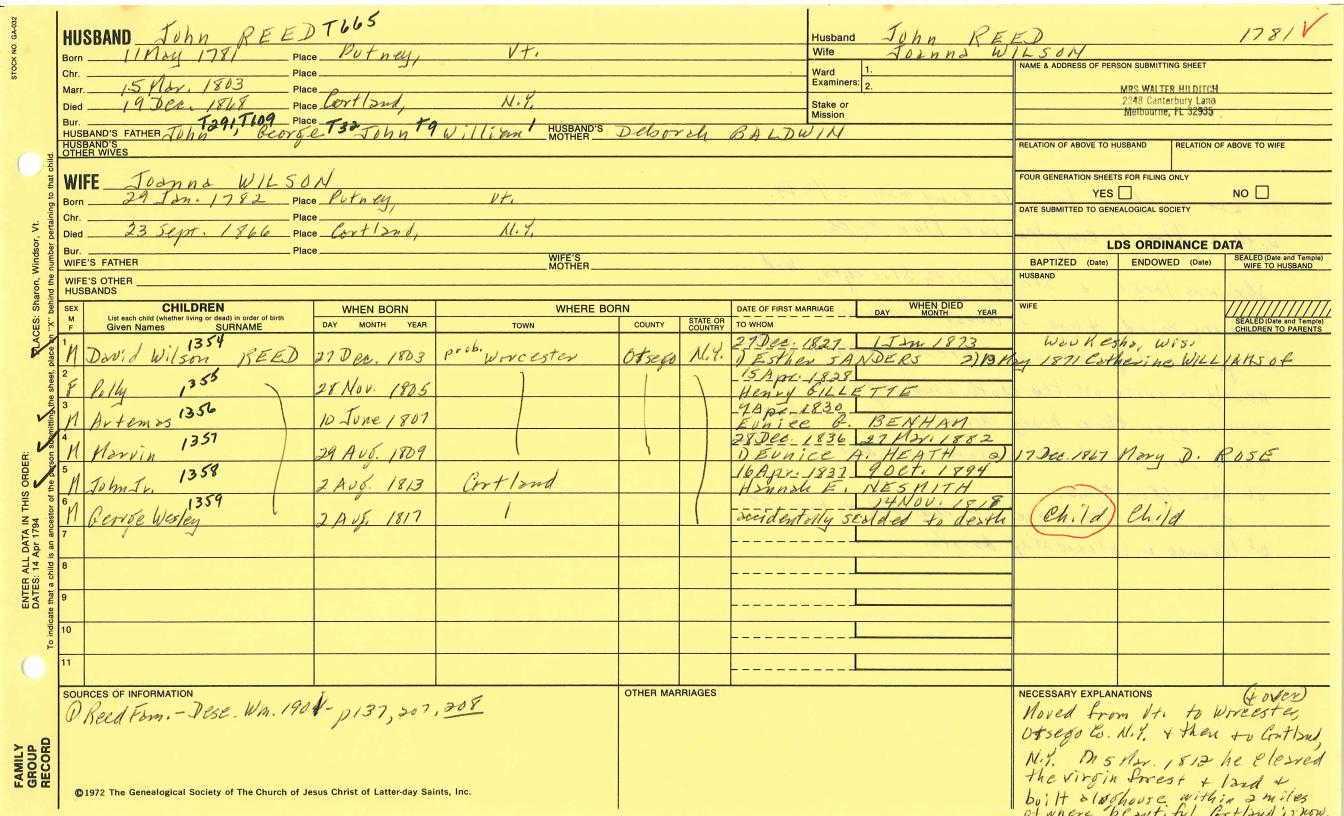 STOCK NO. GA-032
HUSBAND John REED T665
Born 11 May 1781 Place Putney, Vt.
Chr. Place
Marr. 15 Mar. 1803 Place
Died 19 Dec. 1868 Place Cortland, N.Y.
Bur. Place
HUSBAND'S FATHER John T291,T109, George T32 John T9 William 1 HUSBAND'S MOTHER Deborah BALDWIN
HUSBAND'S OTHER WIVES
WIFE Joanna WILSON
Born 29 Jan. 1782 Place Putney, Vt.
Chr. Place
Died 23 Sept. 1866 Place Cortland, N.Y.
Bur. Place
WIFE'S FATHER WIFE'S MOTHER
WIFE'S OTHER HUSBANDS
Husband John REED 1781 ✓
Wife Joanna WILSON
Ward Examiners: 1.
2.
Stake or Mission
NAME & ADDRESS OF PERSON SUBMITTING SHEET
MRS WALTER HILDITCH
2248 Canterbury Lane
Melbourne, FL 32935
RELATION OF ABOVE TO HUSBAND RELATION OF ABOVE TO WIFE
FOUR GENERATION SHEETS FOR FILING ONLY
YES NO
DATE SUBMITTED TO GENEALOGICAL SOCIETY
LDS ORDINANCE DATA
BAPTIZED (Date) ENDOWED (Date) SEALED (Date and Temple) WIFE TO HUSBAND
HUSBAND
WIFE
SEALED (Date and Temple) CHILDREN TO PARENTS
SEX M F CHILDREN WHEN BORN WHERE BORN DATE OF FIRST MARRIAGE WHEN DIED
List each child (whether living or dead) in order of birth
Given Names SURNAME DAY MONTH YEAR TOWN COUNTY STATE OR COUNTRY TO WHOM DAY MONTH YEAR
1 M David Wilson 1354 REED 27 Dec. 1803 prob. Worcester Otsego N.Y. 27 Dec. 1827 1 Jan 1873 Waukesha, Wis.
1) Esther SANDERS 2) 13 May 1871 Catherine WILLIAMS of
2 F Polly 1355 28 Nov. 1805 15 Apr. 1828
Henry GILLETTE
3 M Artemas 1356 10 June 1807 7 Apr. 1830
Eunice BENHAM
4 M Marvin 1357 29 Aug. 1809 28 Dec. 1836 27 Mar. 1882
1) Eunice A. HEATH 2) 17 Dec. 1867 Mary D. ROSE
5 M John Jr. 1358 2 Aug. 1813 Cortland 16 Apr. 1837 9 Oct. 1894
Hannah E. NESMITH
6 M George Wesley 1359 2 Aug. 1817 14 Nov. 1818
accidentally scalded to death Child Child
7
8
9
10
11
SOURCES OF INFORMATION
① Reed Fam. - Desc. Wm. - p137, 207, 208
OTHER MARRIAGES
NECESSARY EXPLANATIONS (+ over)
Moved from Vt. to Worcester,
Otsego Co. N.Y. & then to Cortland,
N.Y. On 5 Mar. 1812 he cleared
the virgin forest & land &
built a loghouse within 2 miles
of where beautiful Cortland is now.
©1972 The Genealogical Society of The Church of Jesus Christ of Latter-day Saints, Inc.
FAMILY GROUP RECORD
ENTER ALL DATA IN THIS ORDER:
DATES: 14 Apr 1794
PLACES: Sharon, Windsor, Vt.
To indicate that a child is an ancestor of the person submitting the sheet, place an "X" behind the number pertaining to that child.